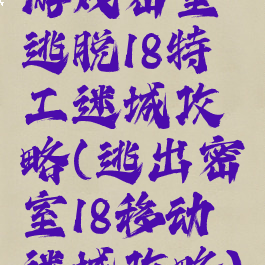 游戏密室
逃脱18特
工迷城攻
略(逃出密
室18移动
迷城攻略)